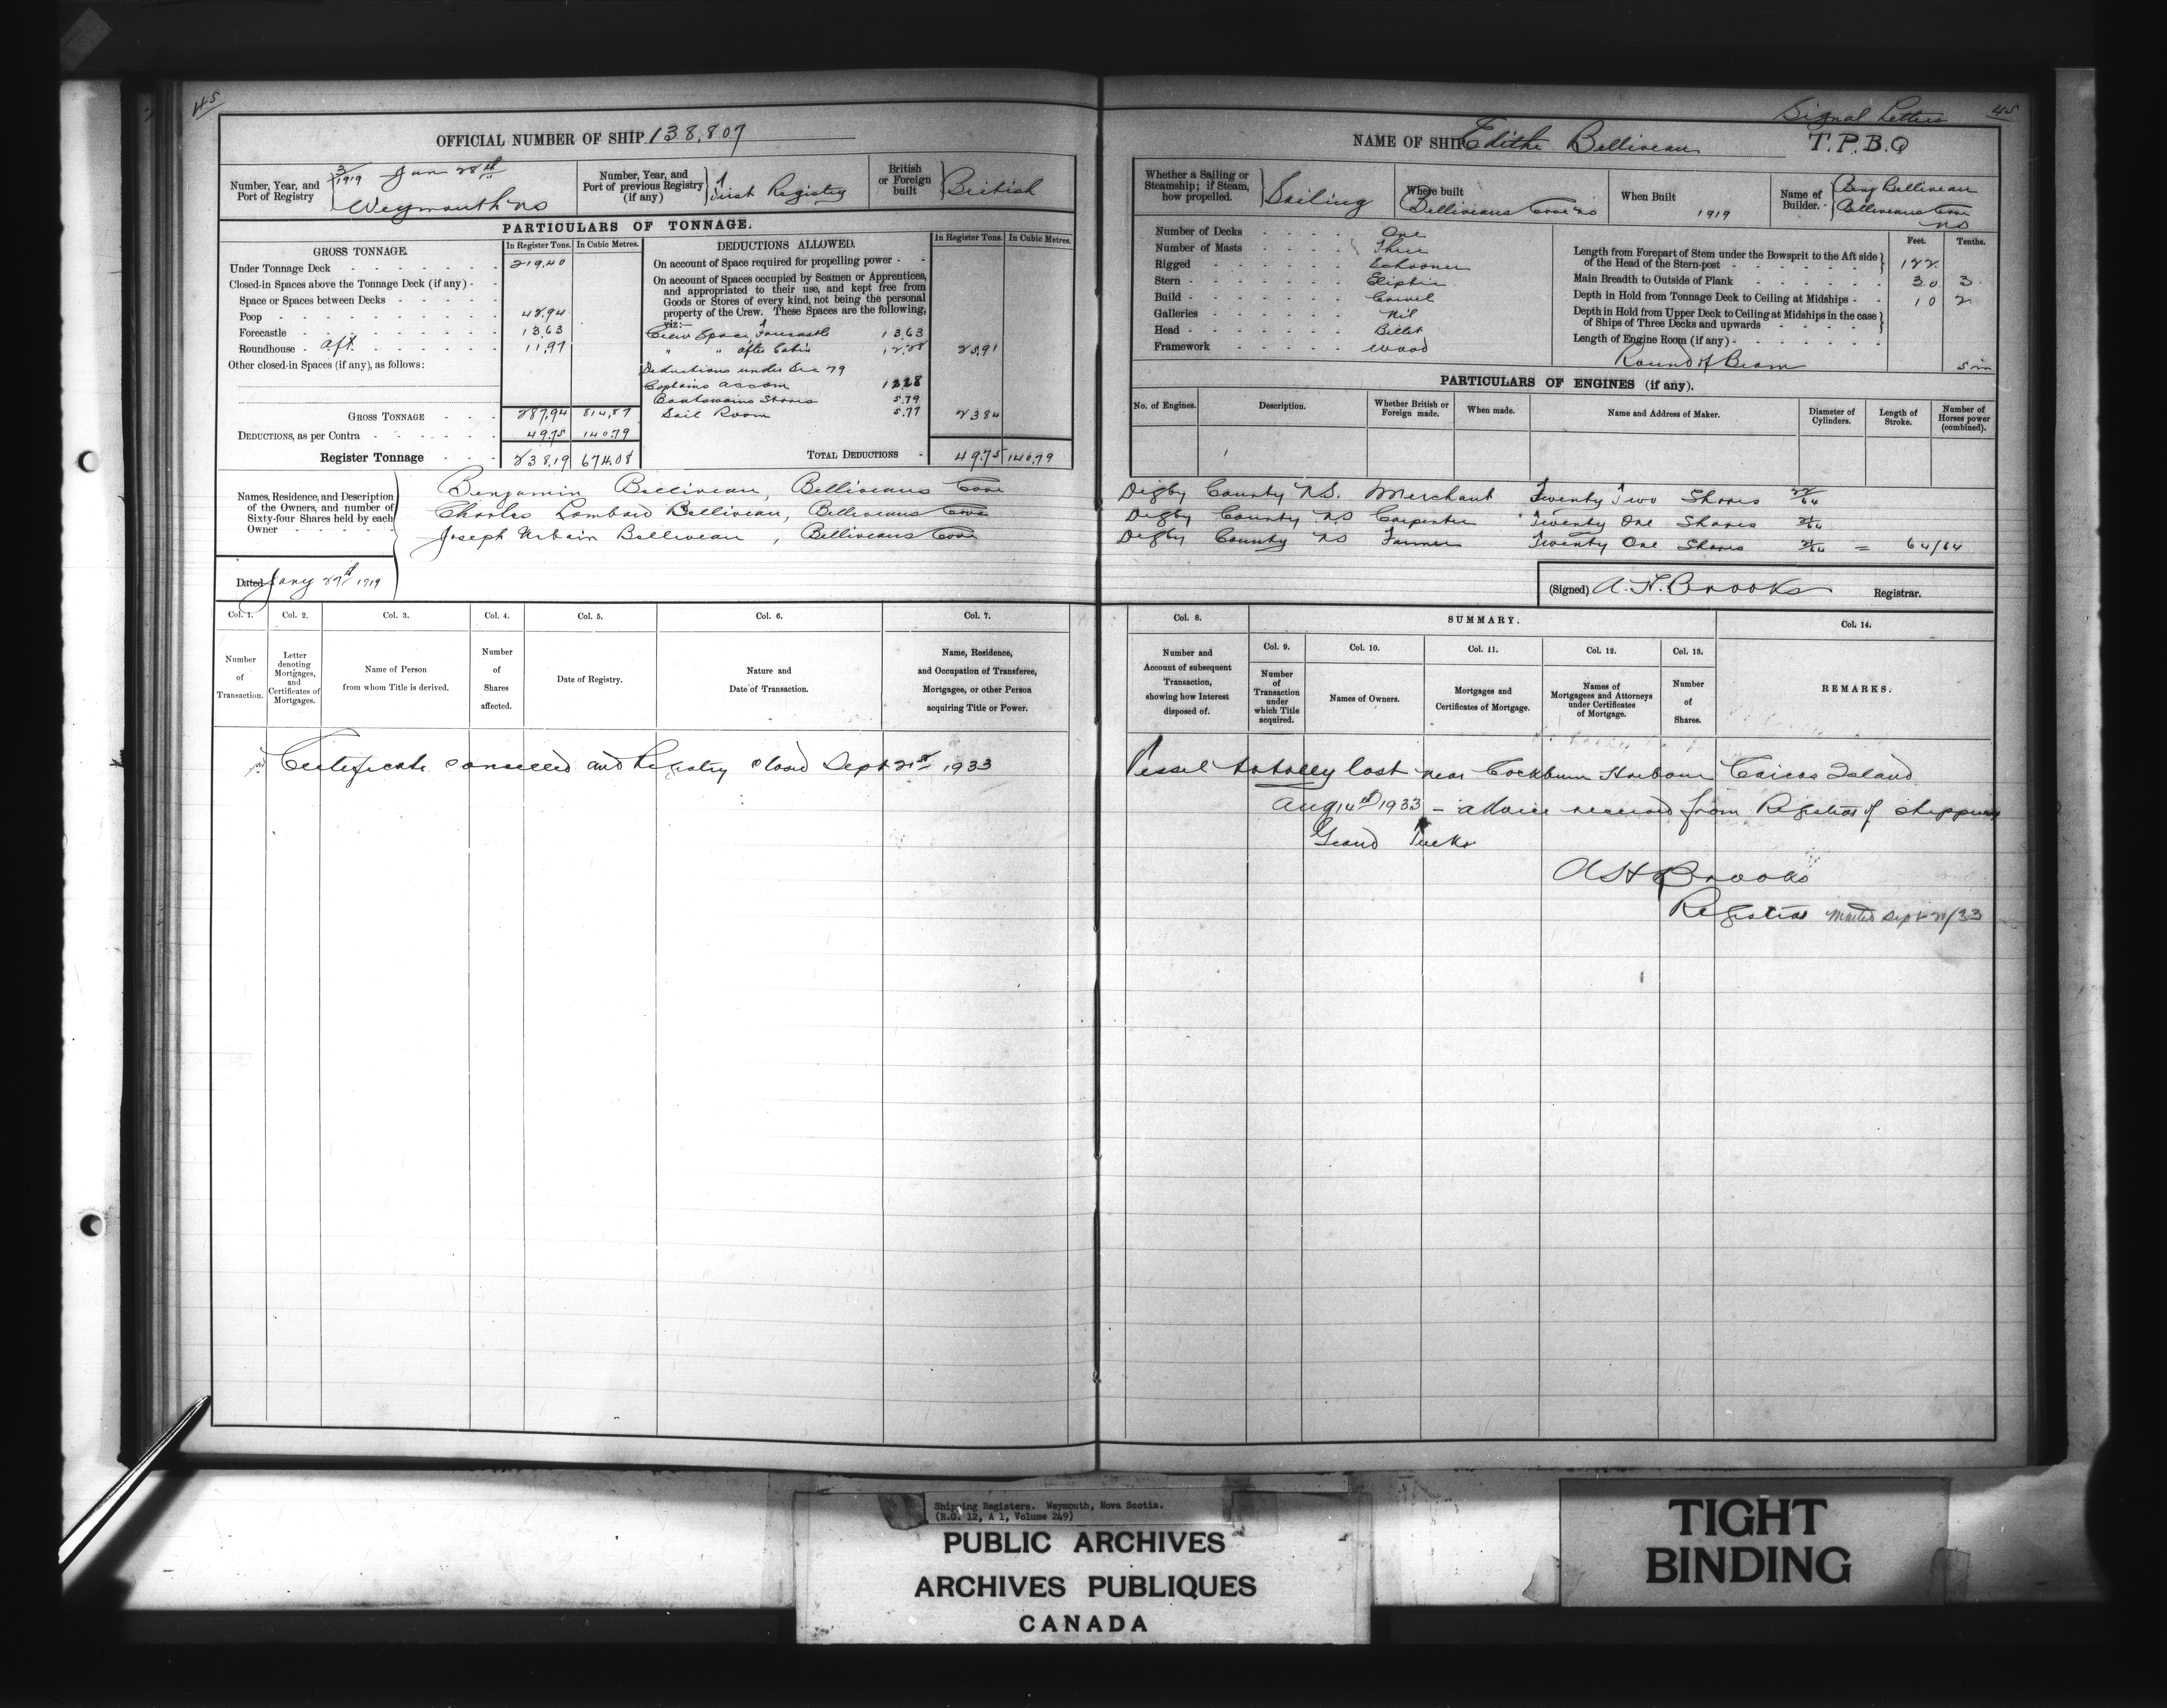 45
OFFICIAL NUMBER OF SHIP 138,807
Number, Year, and Port of Registry
3/1919 Jan 28th
Weymouth NS
Number, Year, and Port of previous Registry (if any)
First Registry
British or Foreign built
British
PARTICULARS OF TONNAGE.
GROSS TONNAGE.
In Register Tons.
In Cubic Metres.
Under Tonnage Deck 219.40
Closed-in Spaces above the Tonnage Deck (if any)
Space or Spaces between Decks
Poop 42.94
Forecastle 13.63
Roundhouse aft 11.97
Other closed-in Spaces (if any), as follows:
GROSS TONNAGE 287.94 814.87
DEDUCTIONS, as per Contra 49.75 140.79
Register Tonnage 238.19 674.08
DEDUCTIONS ALLOWED.
In Register Tons.
In Cubic Metres.
On account of Space required for propelling power
On account of Spaces occupied by Seamen or Apprentices,
and appropriated to their use, and kept free from
Goods or Stores of every kind, not being the personal
property of the Crew. These Spaces are the following,
viz:—
Crew Space, Forecastle 13.63
" " after Cabin 12.28 25.91
Deductions under Sec 79
Captains accom 12.28
Boatswains Stores 5.79
Sail Room 5.77 23.84
TOTAL DEDUCTIONS 49.75 140.79
Names, Residence, and Description
of the Owners, and number of
Sixty-four Shares held by each
Owner
Benjamin Belliveau, Belliveaus Cove
Charles Lombard Belliveau, Belliveaus Cove
Joseph Urbain Belliveau, Belliveaus Cove
Dated Jany 27th 1919
Col. 1.
Col. 2.
Col. 3.
Col. 4.
Col. 5.
Col. 6.
Col. 7.
Number of Transaction.
Letter denoting Mortgages, and Certificates of Mortgages.
Name of Person from whom Title is derived.
Number of Shares affected.
Date of Registry.
Nature and Date of Transaction.
Name, Residence, and Occupation of Transferee, Mortgagee, or other Person acquiring Title or Power.
Certificate cancelled and Registry closed Sept 21st 1933
Signal Letters
45
NAME OF SHIP Edithe Belliveau
T.P.B.Q
Whether a Sailing or Steamship; if Steam, how propelled.
Sailing
Where built
Belliveaus Cove NS
When Built
1919
Name of Builder.
Benj Belliveau
Belliveaus Cove
NS
Number of Decks One
Number of Masts Three
Rigged Schooner
Stern Eliptic
Build Carvel
Galleries Nil
Head Billet
Framework Wood
Feet.
Tenths.
Length from Forepart of Stem under the Bowsprit to the Aft side
of the Head of the Stern-post 122
Main Breadth to Outside of Plank 30 3
Depth in Hold from Tonnage Deck to Ceiling at Midships 10 2
Depth in Hold from Upper Deck to Ceiling at Midships in the case
of Ships of Three Decks and upwards
Length of Engine Room (if any)
Round of Beam 5 in
PARTICULARS OF ENGINES (if any).
No. of Engines.
Description.
Whether British or Foreign made.
When made.
Name and Address of Maker.
Diameter of Cylinders.
Length of Stroke.
Number of Horses power (combined).
Digby County N.S. Merchant Twenty Two Shares 22/64
Digby County NS Carpenter Twenty One Shares 21/64
Digby County NS Farmer Twenty One Shares 21/64 = 64/64
(Signed) A. H. Brooks Registrar.
Col. 8.
SUMMARY.
Col. 14.
Number and Account of subsequent Transaction, showing how Interest disposed of.
Col. 9.
Col. 10.
Col. 11.
Col. 12.
Col. 13.
Number of Transaction under which Title acquired.
Names of Owners.
Mortgages and Certificates of Mortgage.
Names of Mortgagees and Attorneys under Certificates of Mortgage.
Number of Shares.
REMARKS.
Vessel totally lost near Cockburn Harbour Caicos Island
Aug 14th 1933 – advice received from Registrar of Shipping
Grand Turks
A H Brooks
Registrar Mailed Sept 21/33
Shipping Registers. Weymouth, Nova Scotia.
(R.G. 12, A 1, Volume 249)
PUBLIC ARCHIVES
ARCHIVES PUBLIQUES
CANADA
TIGHT
BINDING